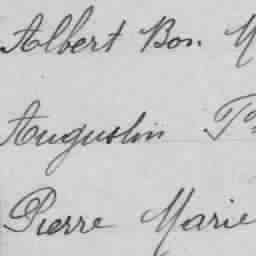 Albert Bon. M
Augustin
Pierre Marie